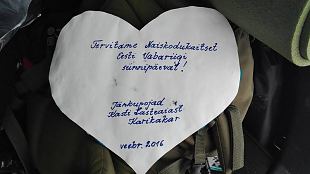 Tervitame Naiskodukaitset
Eesti Vabariigi
sünnipäeval!
Järkupojad
Kasti Lasteaiast
Karikakar
veebr. 2016